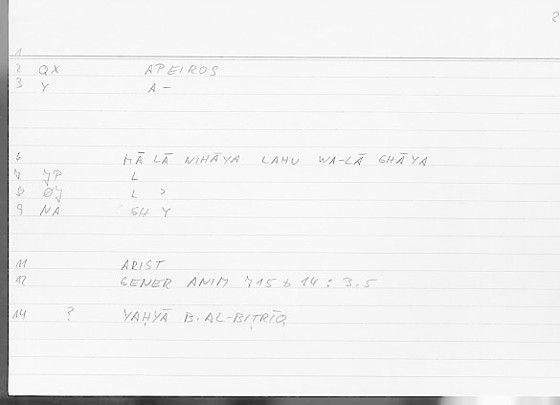 2
1
2 QX APEIROS
3 Y A-
6 MĀ LĀ NIHĀYA LAHU WA-LĀ GHĀYA
7 JP L
8 ØJ L ɔ
9 NA GH Y
11 ARIST
12 GENER ANIM 715 b 14 : 3.5
14 ? YAḤYĀ B. AL-BIṬRĪQ